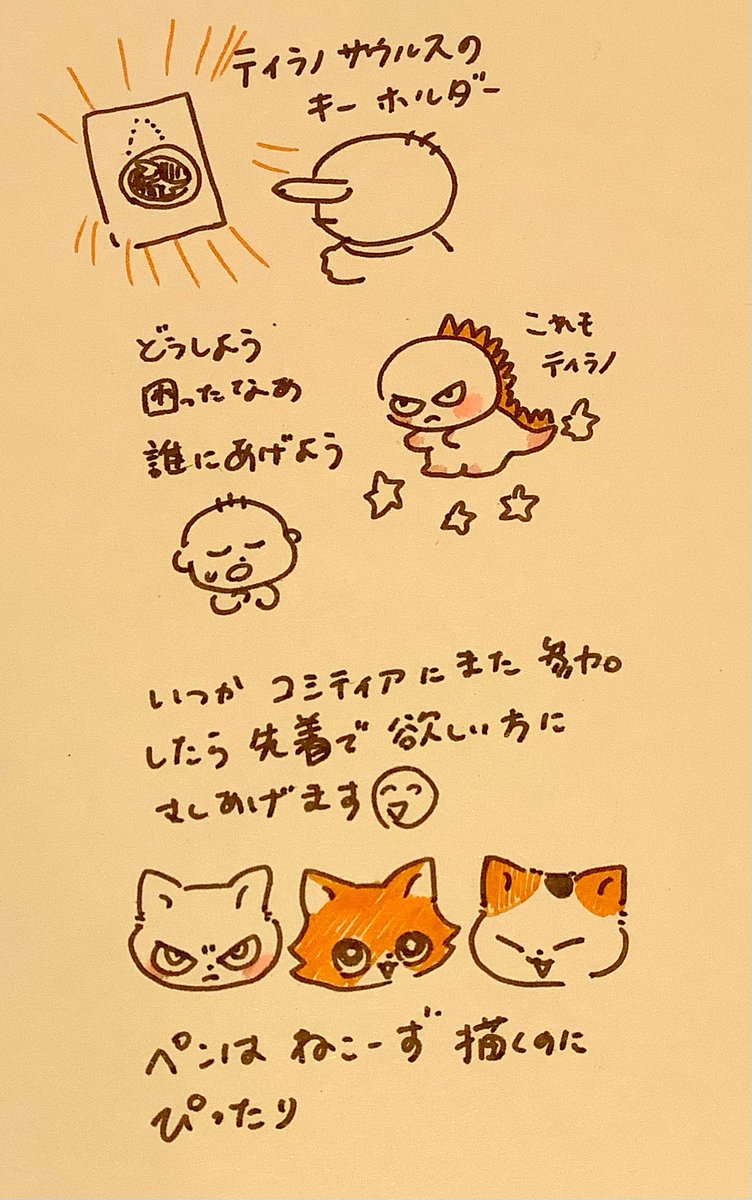 ティラノサウルスの
キーホルダー
どうしよう
困ったなあ
誰にあげよう
これも
ティラノ
いつか コミティアに また 参加
したら 先着で 欲しい方に
さしあげます
ペンは ねこーず 描くのに
ぴったり